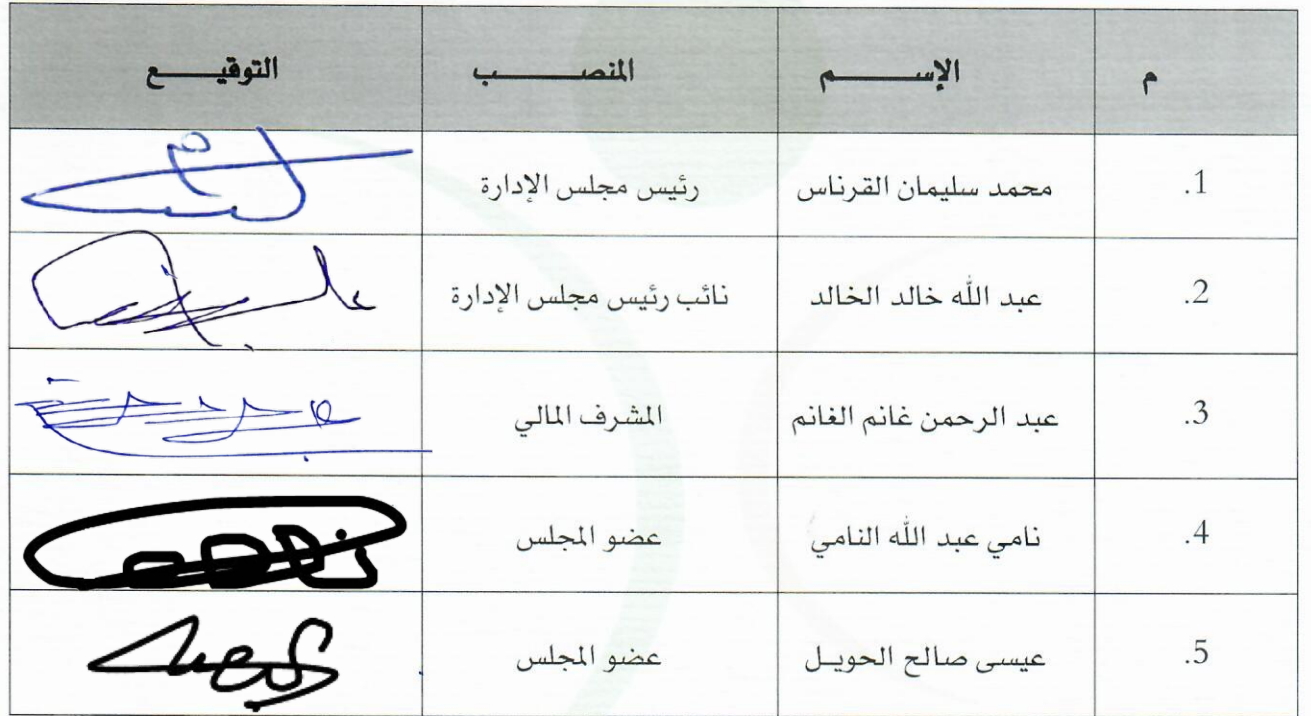 م الإســـــم المنصـــــــــب التوقيـــــع
1. محمد سليمان القرناس رئيس مجلس الإدارة
2. عبد الله خالد الخالد نائب رئيس مجلس الإدارة
3. عبد الرحمن غانم الغانم المشرف المالي
4. نامي عبد الله النامي عضو المجلس
5. عيسى صالح الحويـل عضو المجلس